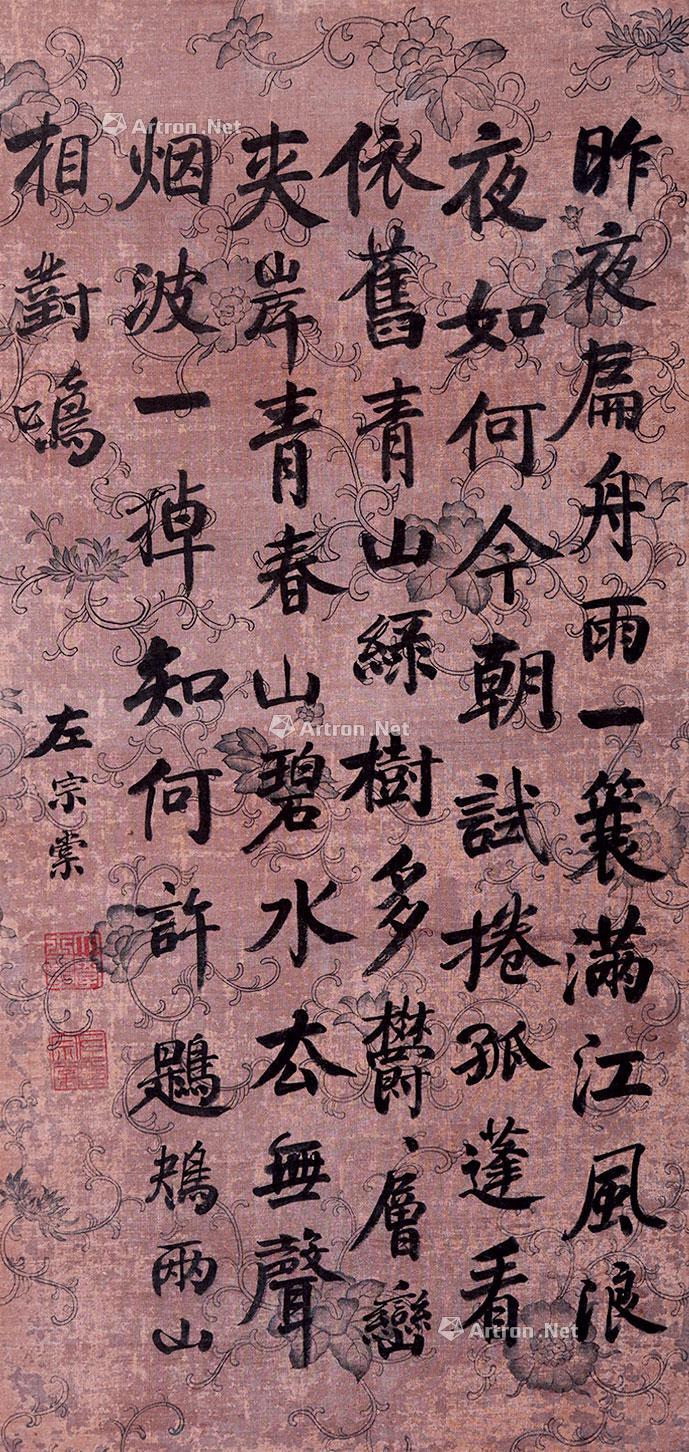 昨夜扁舟雨一蓑满江風浪
夜如何今朝試捲孤蓬看
依舊青山綠樹多欝、層巒
夾岸青春山碧水厺無聲
烟波一掉知何許鶗鴂兩山
相對鳴
左宗棠
Artron.Net
Artron.Net
Artron.Net